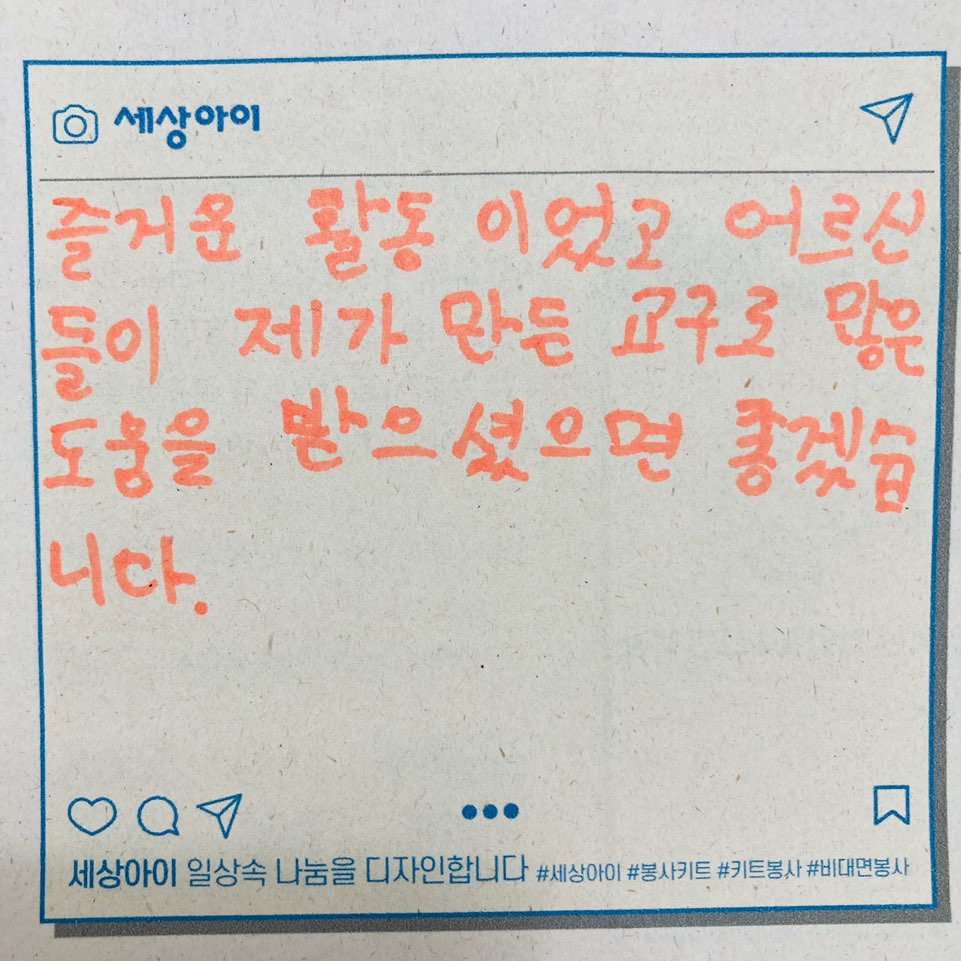 세상아이
즐거운 활동 이었고 어르신
들이 제가 만든 교구로 많은
도움을 받으셨으면 좋겠습
니다.
세상아이 일상속 나눔을 디자인합니다 #세상아이 #봉사키트 #키트봉사 #비대면봉사